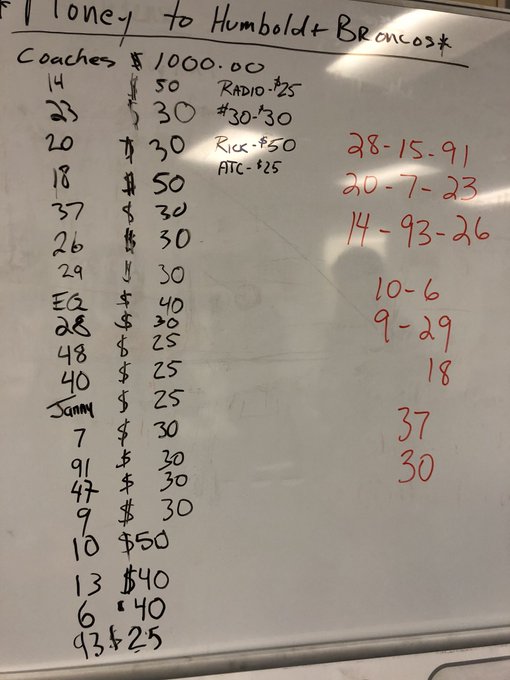 * Money to Humboldt Broncos *
Coaches $ 1000.00
14 $ 50
23 $ 30
20 $ 30
18 $ 50
37 $ 30
26 $ 30
29 $ 30
EQ $ 40
28 $ 30
48 $ 25
40 $ 25
Janny $ 25
7 $ 30
91 $ 30
47 $ 30
9 $ 30
10 $50
13 $40
6 $ 40
93 $ 25
RADIO - $25
#30 - $30
RICK - $50
ATC - $25
28 - 15 - 91
20 - 7 - 23
14 - 93 - 26
10 - 6
9 - 29
18
37
30